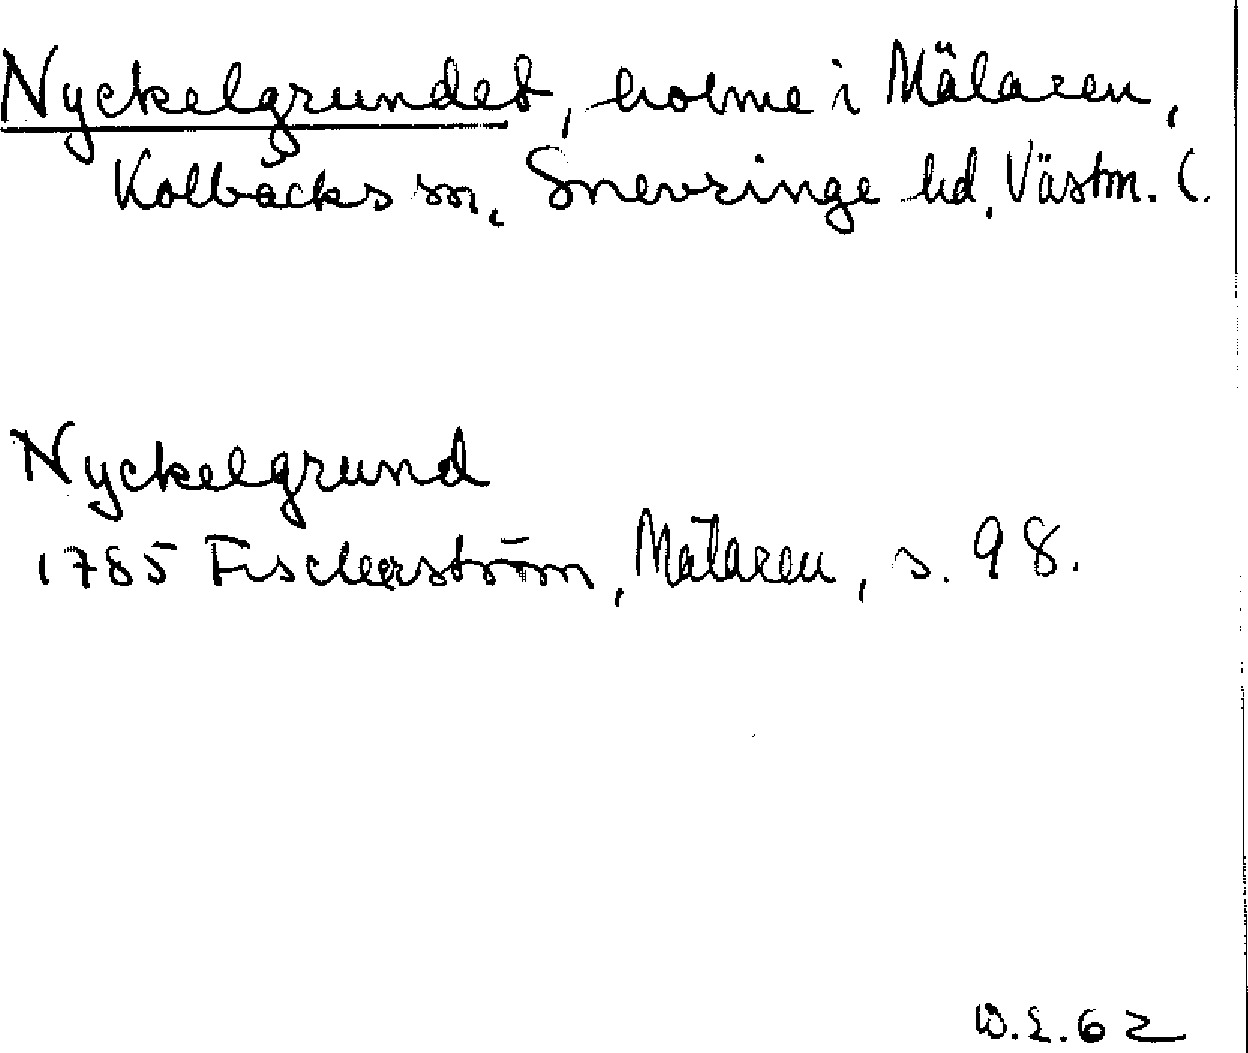 Nyckelgrundet, holme i Mälaren,
Kolbäcks sn, Snevringe hd, Västm. l.
Nyckelgrund
1785 Fischerström, Mälaren, s. 98.
62